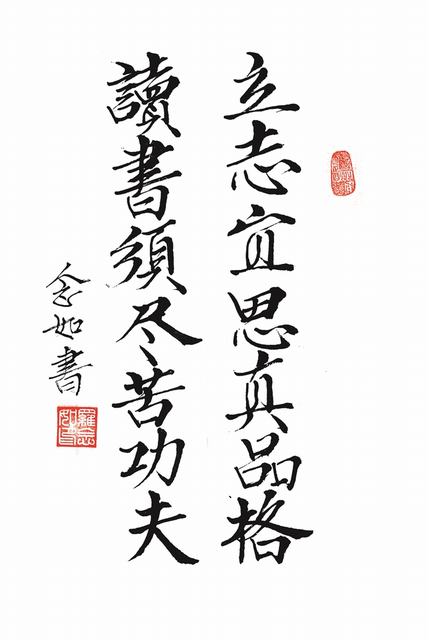 立志宜思真品格
讀書須尽苦功夫
念如書